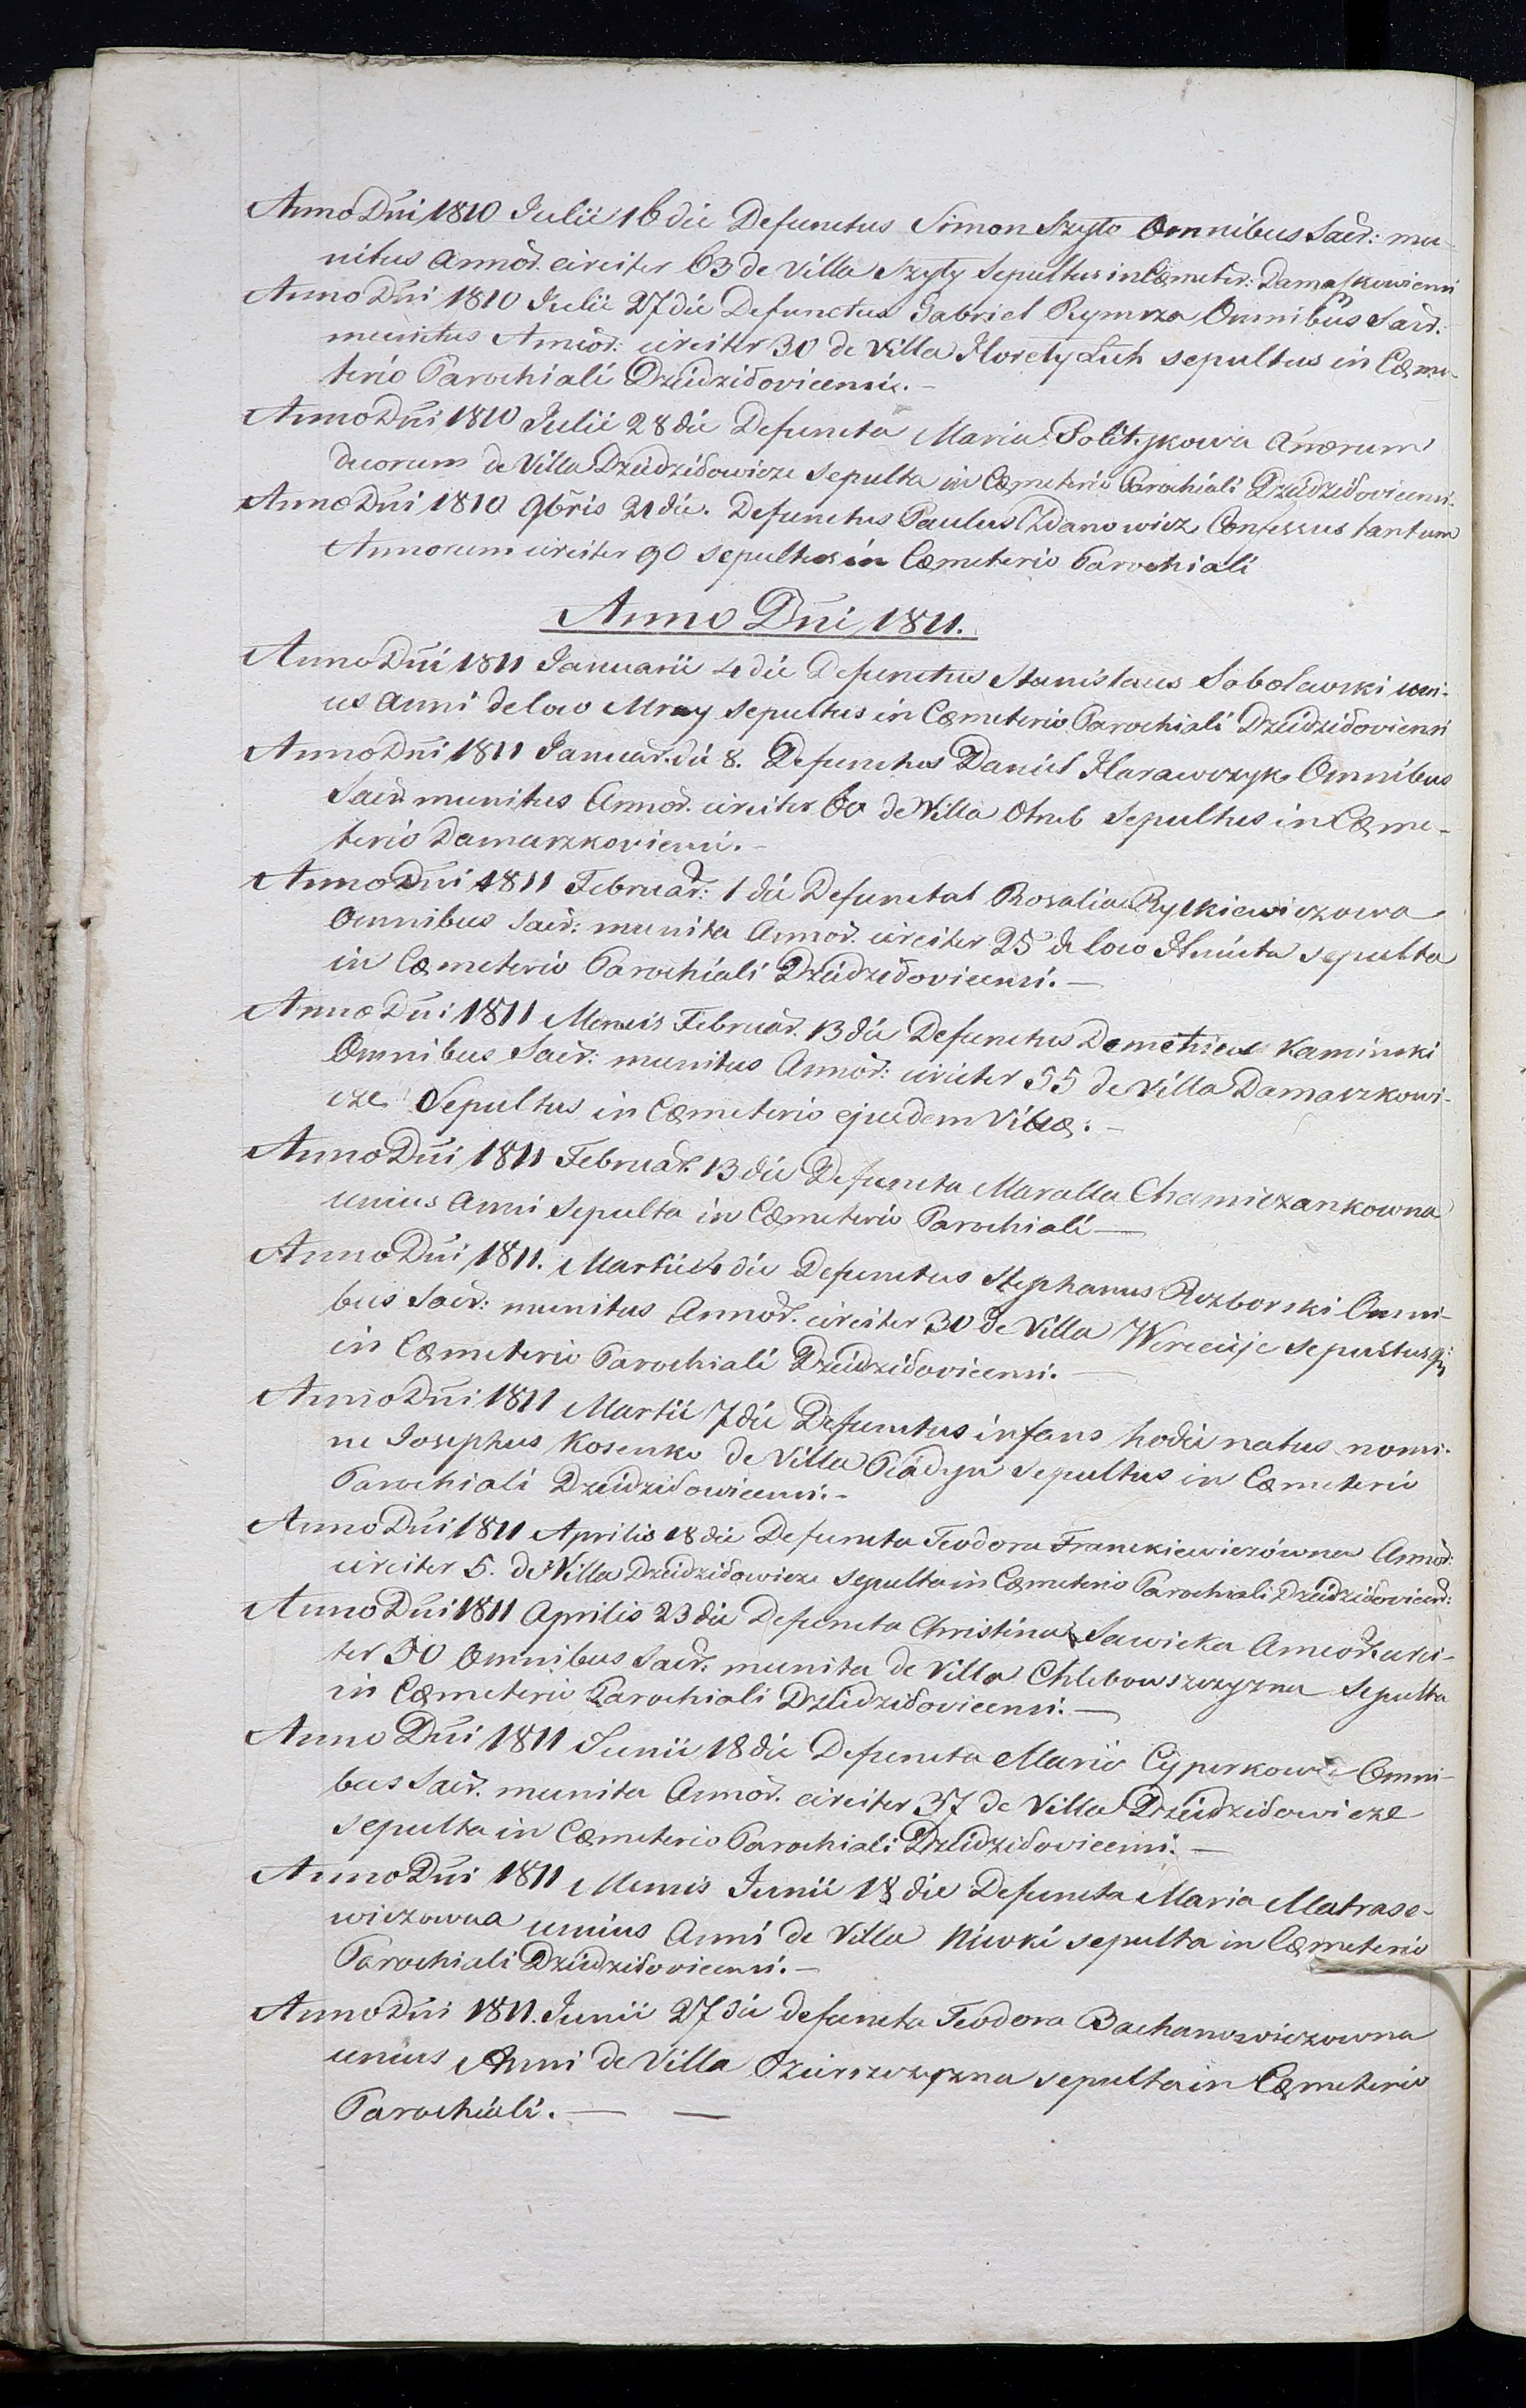 Anno Dñi 1810 Julii 16 die Defunctus Simon Szyło Omnibus Sacr: mu-
nitus Annor. circiter 63 de Villa Szyły Sepultus in Cæmeter: Damaszkowicensi
Anno Dñi 1810 Julii 27 die Defunctus Gabriel Rymsza Omnibus Sacr:
munitus Annor: circiter 30 de Villa Horely Luh sepultus in Cæme-
terio Parochiali Dziedzidovicensi.-
Anno Dñi 1810 Julii 28 die Defuncta Maria Politykowa Annorum
duorum de Villa Dziedzidowicze sepulta in Cæmeterio Parochiali Dziedzidovicensi.
Anno Dñi 1810 9bris 21 die. Defunctus Paulus Zdanowicz Confessus tantum
Annorum circiter 90 sepultus in Cæmeterio Parochiali
Anno Dñi 1811.
Anno Dñi 1811 Januarii 4 die Defunctus Stanislaus Sobolewski uni-
us Anni de loco Mroy sepultus in Cæmeterio Parochiali Dziedzidoviensi
Anno Dñi 1811 Januar. die 8. Defunctus Daniel Harawczyk Omnibus
Sacr. munitus Annor. circiter 60 de Villa Otrub Sepultus in Cæme-
terio Damaszkoviensi.-
Anno Dñi 1811 Februar: 1 die Defuncta Rosalia Rytkiewiczowa
Omnibus Sacr: munita Annor. circiter 25 de loco Hnieta sepulta
in Cæmeterio Parochiali Dziedzidovicensi.-
Anno Dñi 1811 Mensis Februar. 13 die Defunctus Demetrius Kaminski
Omnibus Sacr: munitus Annor: circiter 55 de Villa Damaszkowi-
cze Sepultus in Cæmeterio ejusdem Villæ.-
Anno Dñi 1811 Februar. 13 die Defuncta Maralla Chamiczankowna
unius Anni sepulta in Cæmeterio Parochiali-
Anno Dñi 1811. Martii 4 die Defunctus Stephanus Rozborski Omni-
bus Sacr: munitus Annor. circiter 30 de Villa Werecije sepultus
in Cæmeterio Parochiali Dziedzidovicensi.-
Anno Dñi 1811 Martii 7 die Defunctus infans hodie natus nomi-
ne Josephus Kosenko de Villa Piadyn sepultus in Cæmeterio
Parochiali Dziedzidowicensi.-
Anno Dñi 1811 Aprilis 18 die Defuncta Teodora Franckiewiczówna Annor:
circiter 5. de Villa Dziedzidowicze sepulta in Cæmeterio Parochiali Dziedzidovicen:
Anno Dñi 1811 Aprilis 23 die Defuncta Christina Sawicka Annor. circi-
ter 50 Omnibus Sacr: munita de Villa Chlebowszczyzna Sepulta
in Cæmeterio Parochiali Dziedzidovicensi.-
Anno Dñi 1811 Junii 18 die Defuncta Maria Cyperkowa Omni-
bus Sacr. munita Annor. circiter 37 de Villa Dziedzidowicze
sepulta in Cæmeterio Parochiali Dziedzidovicensi.-
Anno Dñi 1811 Mensis Junii 18 die Defuncta Maria Matrase-
wiczowna unius Anni de Villa Niwki sepulta in Cæmeterio
Parochiali Dziedzidovicensi.-
Anno Dñi 1811. Junii 27 die defuncta Teodora Bachanowiczowna
unius Anni de Villa sepulta in Cæmeterio
Parochiali.- -